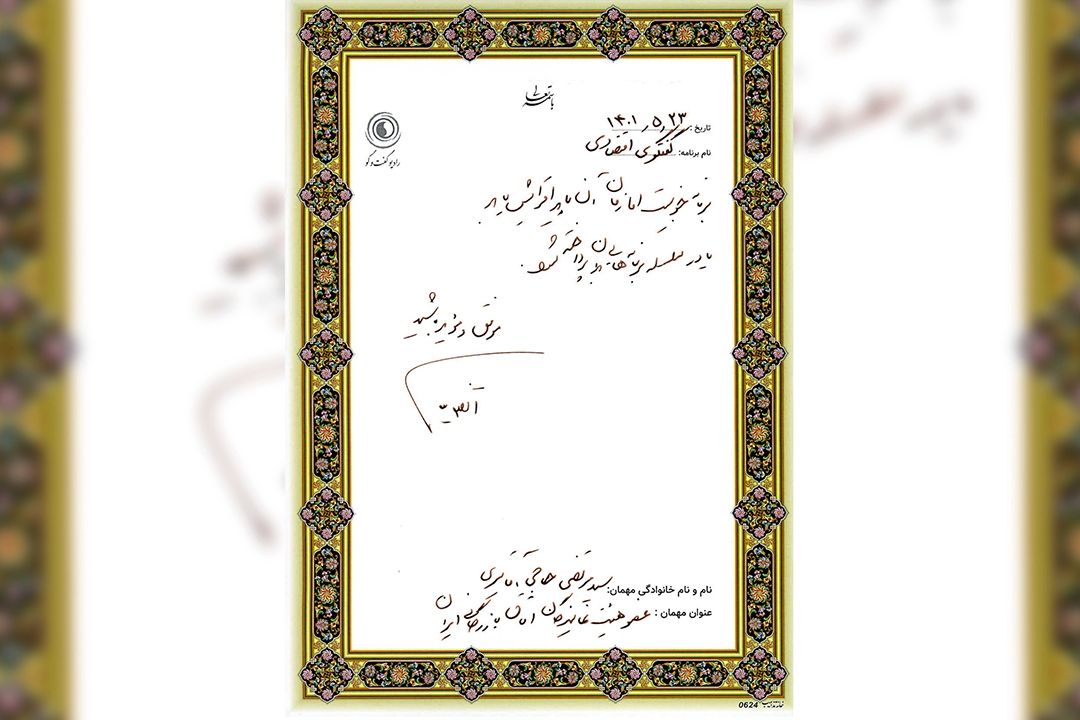 باسمه تعالی
رادیو گفت و گو
تاریخ: ۱۴۰۱/۵/۲۳
نام برنامه: گفتگوی اقتصادی
برنامه خوبیست اما زمان آن باید افزایش یابد
یا در سلسله برنامه هایی به آن پرداخته شود.
موفق و مؤید باشید
نام و نام خانوادگی مهمان: سید مرتضی حاجی آقامیری
عنوان مهمان: عضو هیئت نمایندگان اتاق بازرگانی ایران
0624